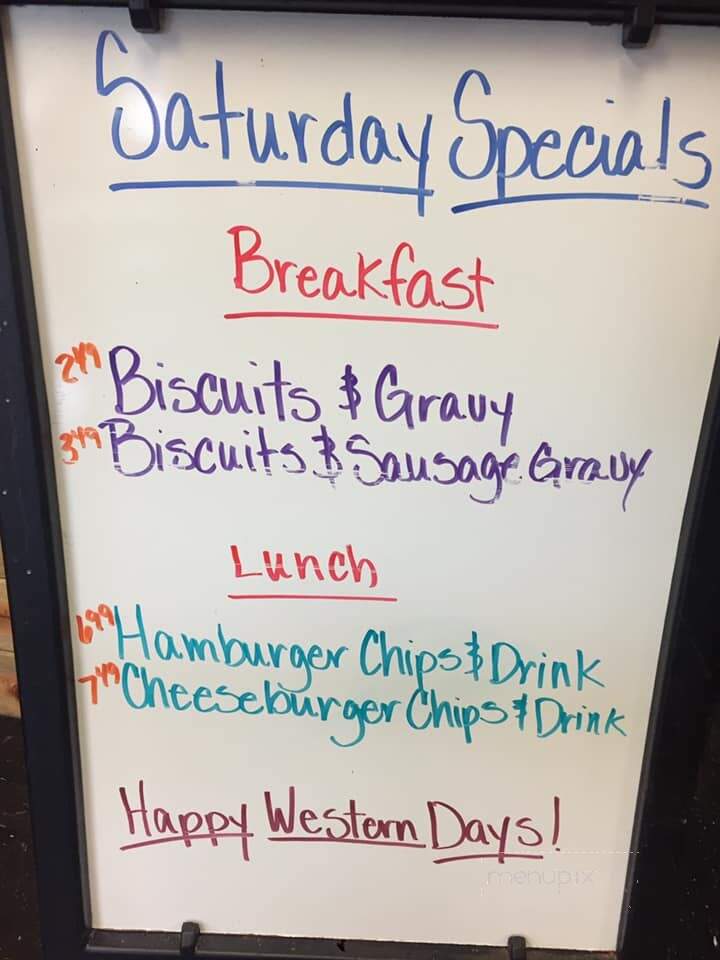 Saturday Specials
Breakfast
2.49 Biscuits & Gravy
3.49 Biscuits & Sausage Gravy
Lunch
6.99 Hamburger Chips & Drink
7.49 Cheeseburger Chips & Drink
Happy Western Days!
menupix